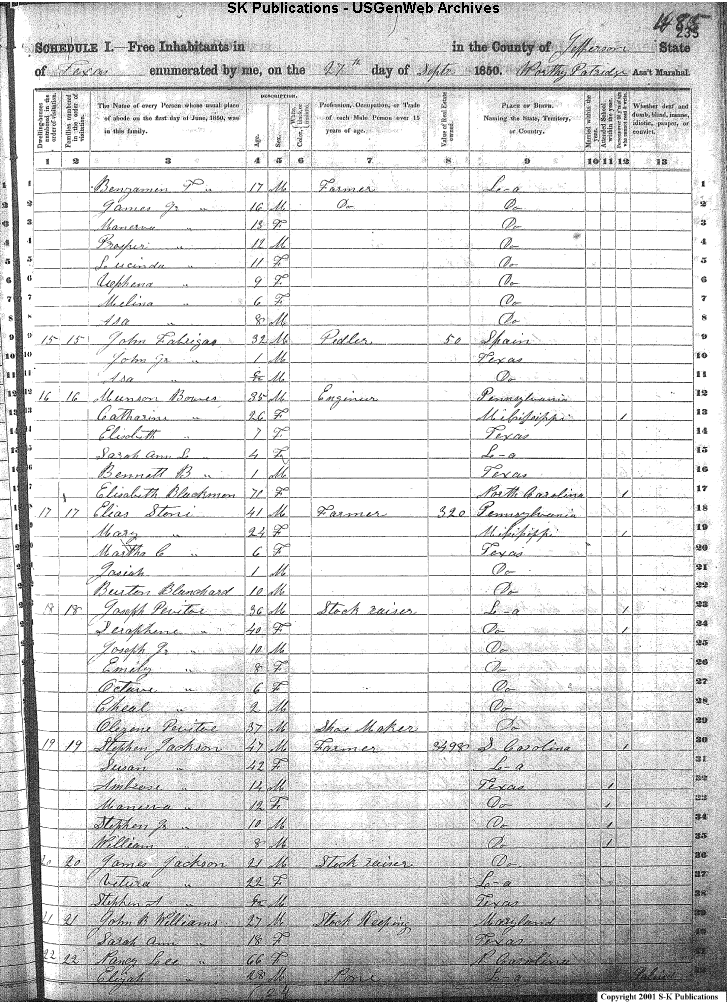 SK Publications - USGenWeb Archives
485
233
SCHEDULE I.—Free Inhabitants in in the County of Jefferson State
of Texas enumerated by me, on the 27th day of Septr 1850. Worthy Patridge Ass't Marshal.
DESCRIPTION.
Dwelling-houses numbered in the order of visitation.
Families numbered in the order of visitation.
The Name of every Person whose usual place of abode on the first day of June, 1850, was in this family.
Age.
Sex.
Color
Profession, Occupation, or Trade of each Male Person over 15 years of age.
Value of Real Estate owned.
PLACE OF BIRTH. Naming the State, Territory, or Country.
Married within the year.
Attended School within the year.
Whether deaf and dumb, blind, insane, idiotic, pauper, or convict.
1 2 3 4 5 6 7 8 9 10 11 12 13
1 Benjamen F " 17 M Farmer L-a 1
2 James Jr " 16 M Do Do 2
3 Manerva " 13 F Do 3
4 Prosper " 12 M Do 4
5 Lucinda " 11 F Do 5
6 Uephena " 9 F Do 6
7 Melina " 6 F Do 7
8 Asa " 8 M Do 8
9 15 15 John Fabrigas 32 M Pedler 50 Spain 9
10 John Jr " 1 M Texas 10
11 Asa " M Do 11
12 16 16 Munson Bowes 35 M Engineer Pennsylvania 12
13 Catharine " 26 F Mississippi 1 13
14 Elisabeth " 7 F Texas 14
15 Sarah Ann L " 4 F L-a 15
16 Bennett B " 1 M Texas 16
17 Elisabeth Blackmon 71 F North Carolina 1 17
18 17 17 Elias Stoni 41 M Farmer 320 Pennsylvania 18
19 Mary " 24 F Mississippi 1 19
20 Martha C " 6 F Texas 20
21 Josiah " 1 M Do 21
22 Burton Blanchard 10 M Do 22
23 18 18 Joseph Pevitoe 36 M Stock raiser L-a 1 23
24 Seraphene " 40 F Do 1 24
25 Joseph Jr " 10 M Do 25
26 Emily " 8 F Do 26
27 Octave " 6 F Do 27
28 Cheal " 2 M Do 28
29 Olezene Pevitoe 37 M Shoe Maker Do 29
30 19 19 Stephen Jackson 47 M Farmer 3498 S Carolina 1 30
31 Susan " 42 F L-a 31
32 Ambrose " 14 M Texas 1 32
33 Manerva " 12 F Do 1 33
34 Stephen Jr " 10 M Do 1 34
35 William " 8 M Do 1 35
36 20 20 James Jackson 21 M Stock raiser Do 36
37 Vetura " 22 F L-a 37
38 Stephen A " M Texas 38
39 21 21 John B Williams 27 M Stock Keeping Maryland 39
40 Sarah Ann " 18 F Texas 40
22 22 Nancy Lee " 66 F N Carolina
Elijah " 28 M None L-a
Copyright 2001 S-K Publications